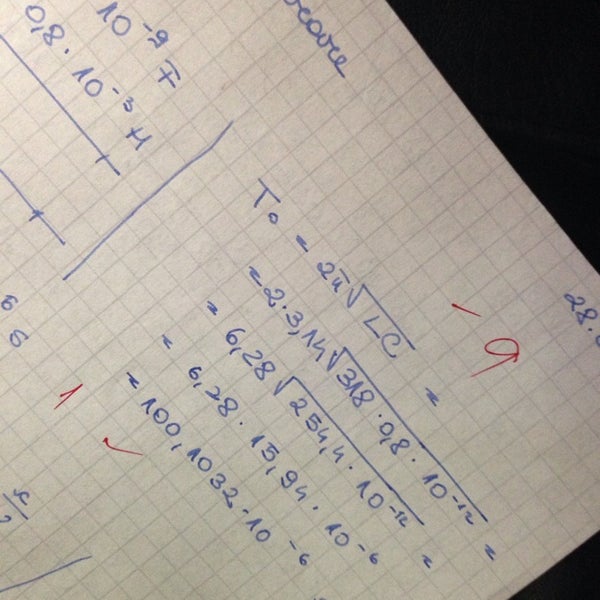 10⁻⁹ F
0,8 · 10⁻³ H
T₀ = 2π√LC =
= 2 · 3,14 √318 · 0,8 · 10⁻¹² =
= 6,28 √254,4 · 10⁻¹² =
= 6,28 · 15,94 · 10⁻⁶
= 100,1032 · 10⁻⁶
28.
1